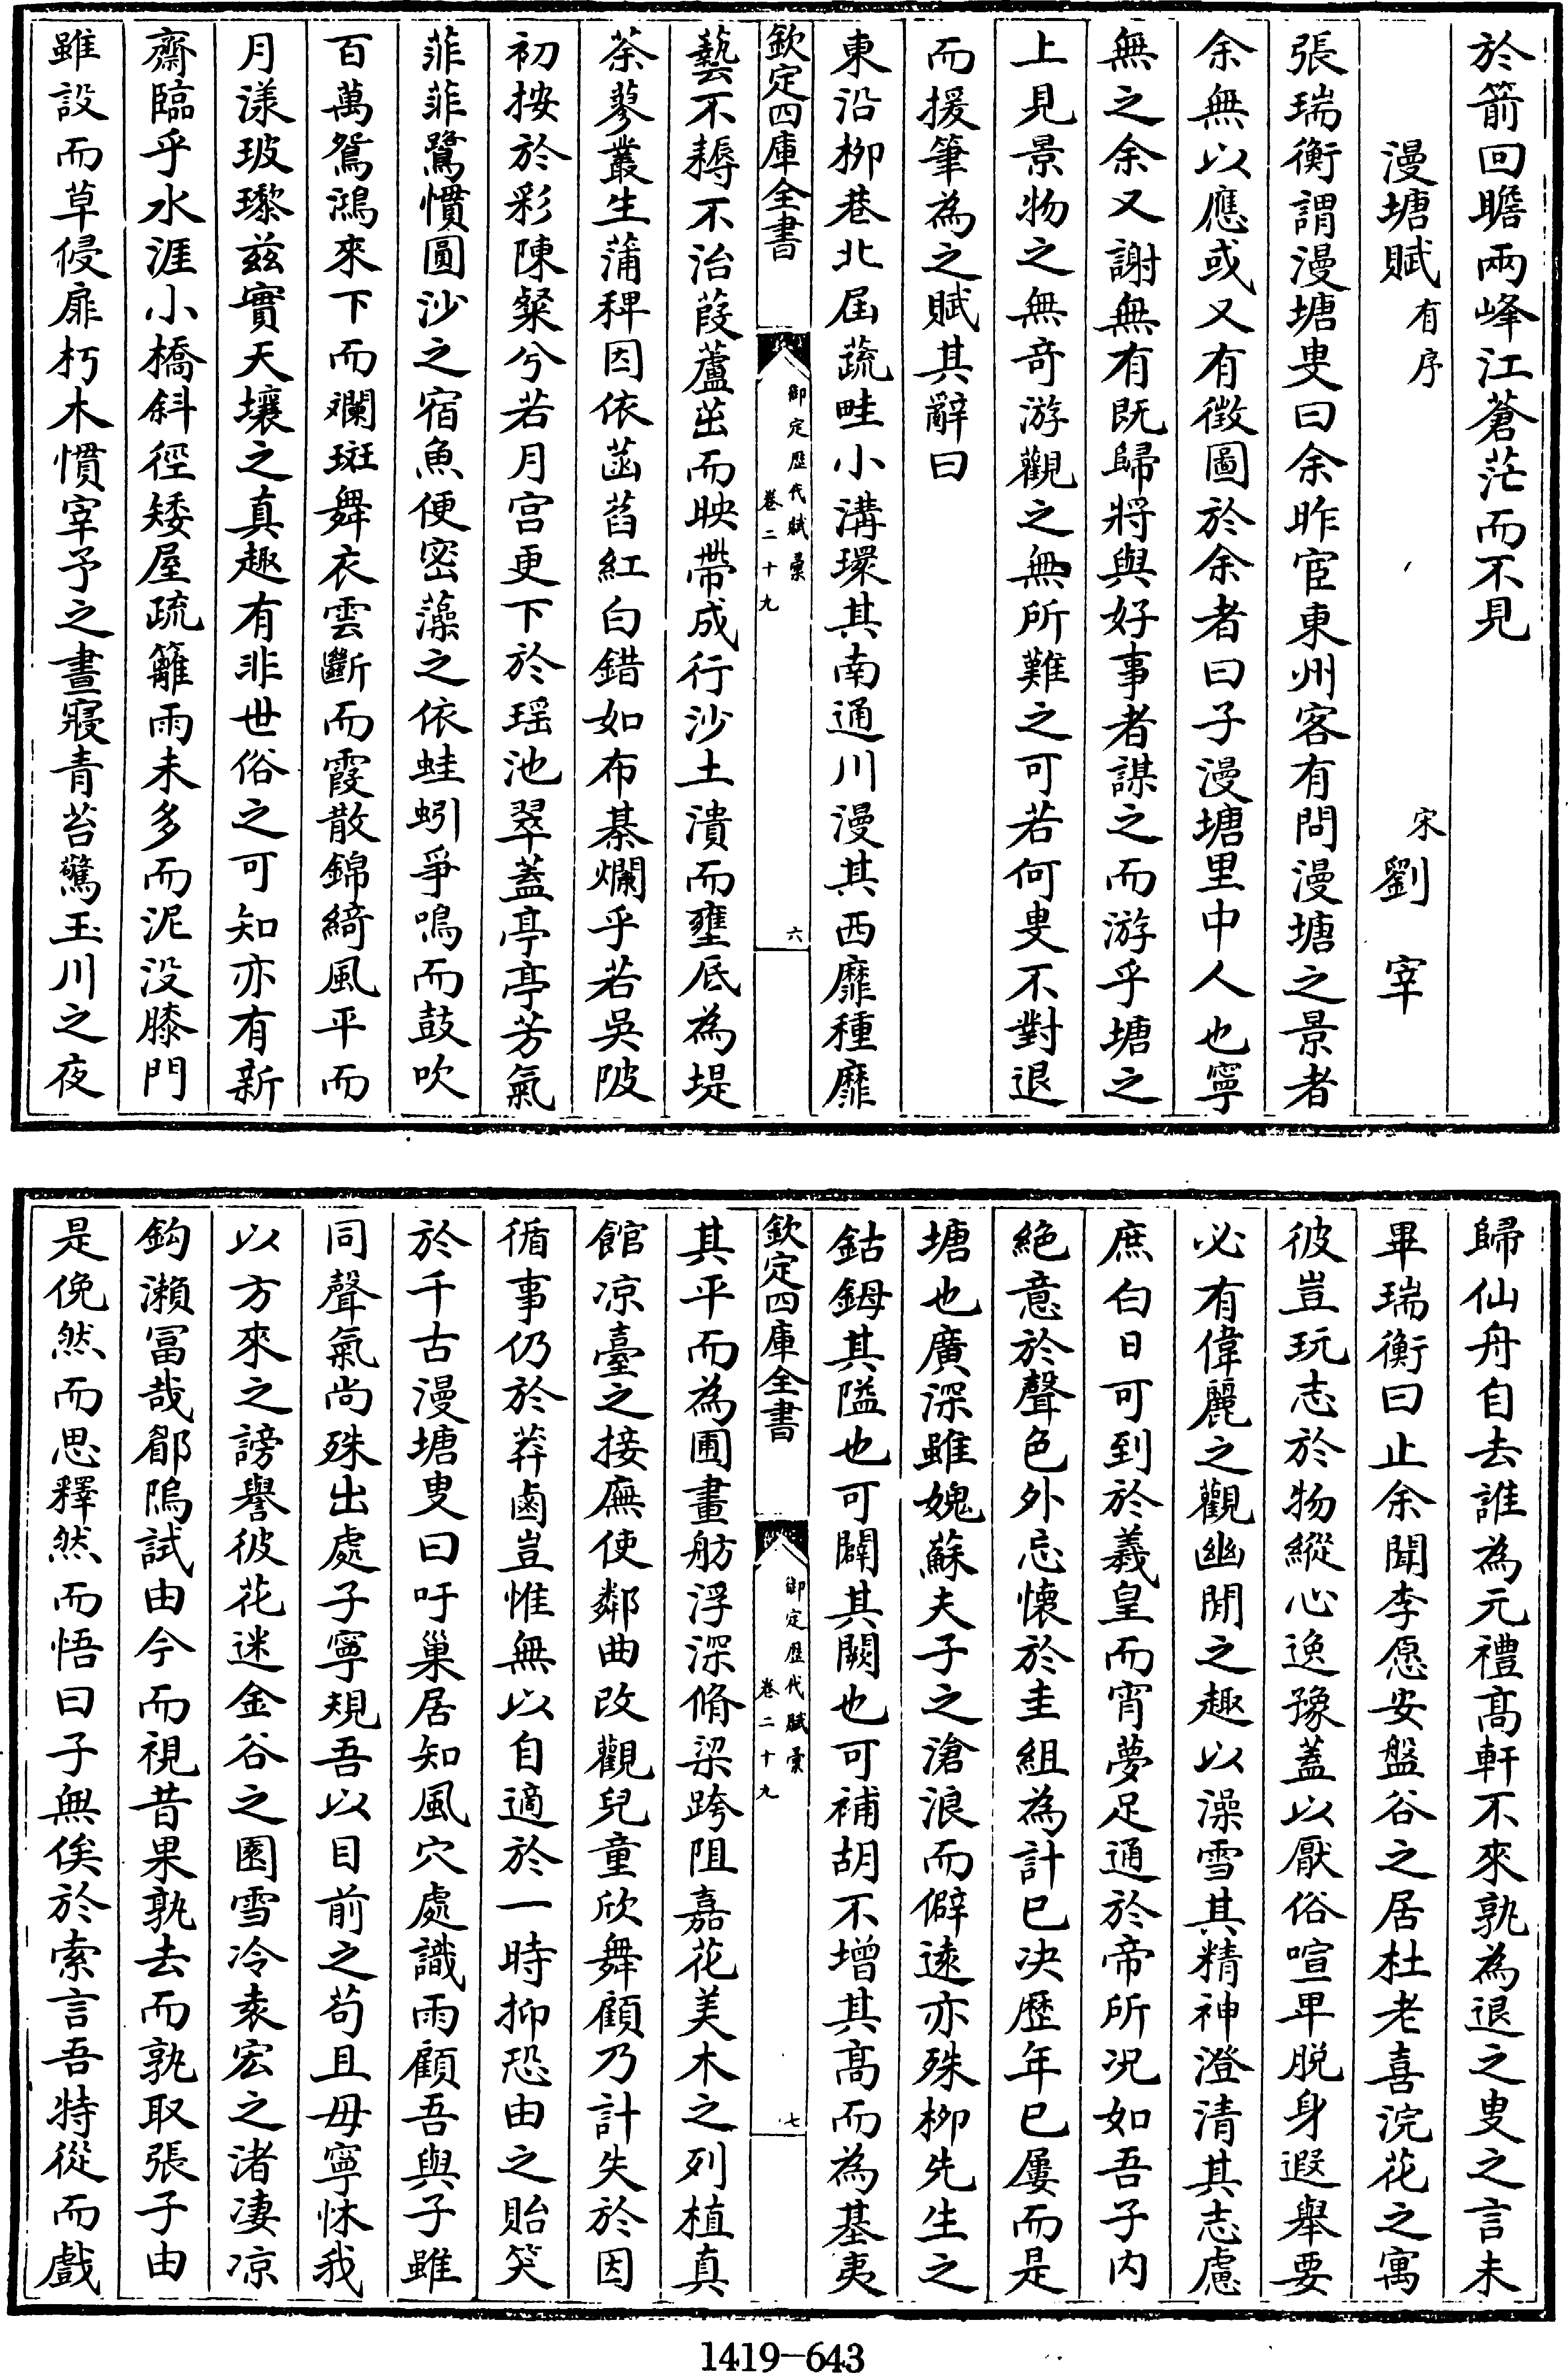 於箭回瞻兩峰江蒼茫而不見
漫塘賦有序 宋劉宰
張瑞衡謂漫塘叟曰余昨宦東州客有問漫塘之景者
余無以應或又有徵圖於余者曰子漫塘里中人也寧
無之余又謝無有既歸將與好事者謀之而游乎塘之
上見景物之無奇游觀之無所難之可若何叟不對退
而援筆為之賦其辭曰
東沿柳巷北屆蔬畦小溝環其南通川漫其西靡種靡
欽定四庫全書
御定歷代賦彙
卷二十九
六
藝不耨不治葭蘆茁而映帶成行沙土潰而壅底為堤
荼蓼叢生蒲稗因依菡萏紅白錯如布棊爛乎若吳陂
初按於彩陳粲兮若月宮更下於瑤池翠蓋亭亭芳氣
菲菲鷺慣圓沙之宿魚便密藻之依蛙蚓爭鳴而鼓吹
百萬鴛鴻來下而斕斑舞衣雲斷而霞散錦綺風平而
月漾玻瓈兹實天壤之真趣有非世俗之可知亦有新
齋臨乎水涯小橋斜徑矮屋疏籬雨未多而泥沒膝門
雖設而草侵扉朽木慣宰予之晝寢青苔驚玉川之夜
歸仙舟自去誰為元禮高軒不來孰為退之叟之言未
畢瑞衡曰止余聞李愿安盤谷之居杜老喜浣花之寓
彼豈玩志於物縱心逸豫蓋以厭俗喧卑脱身遐舉要
必有偉麗之觀幽閒之趣以澡雪其精神澄清其志慮
庶白日可到於羲皇而宵夢足通於帝所况如吾子内
絶意於聲色外忘懷於圭組為計已决歷年已屢而是
塘也廣深雖媿蘇夫子之滄浪而僻逺亦殊柳先生之
鈷鉧其隘也可闢其闕也可補胡不增其高而為基夷
欽定四庫全書
御定歷代賦彙
卷二十九
七
其平而為圃畫舫浮深脩梁跨阻嘉花美木之列植真
館凉臺之接廡使鄰曲改觀兒童欣舞顧乃計失於因
循事仍於莽鹵豈惟無以自適於一時抑恐由之貽笑
於千古漫塘叟曰吁巢居知風穴處識雨顧吾與子雖
同聲氣尚殊出處子寧規吾以目前之苟且毋寧怵我
以方來之謗譽彼花迷金谷之園雪冷袁宏之渚凄凉
鈎瀨冨哉郿隖試由今而視昔果孰去而孰取張子由
是俛然而思釋然而悟曰子無俟於索言吾特從而戲
1419-643